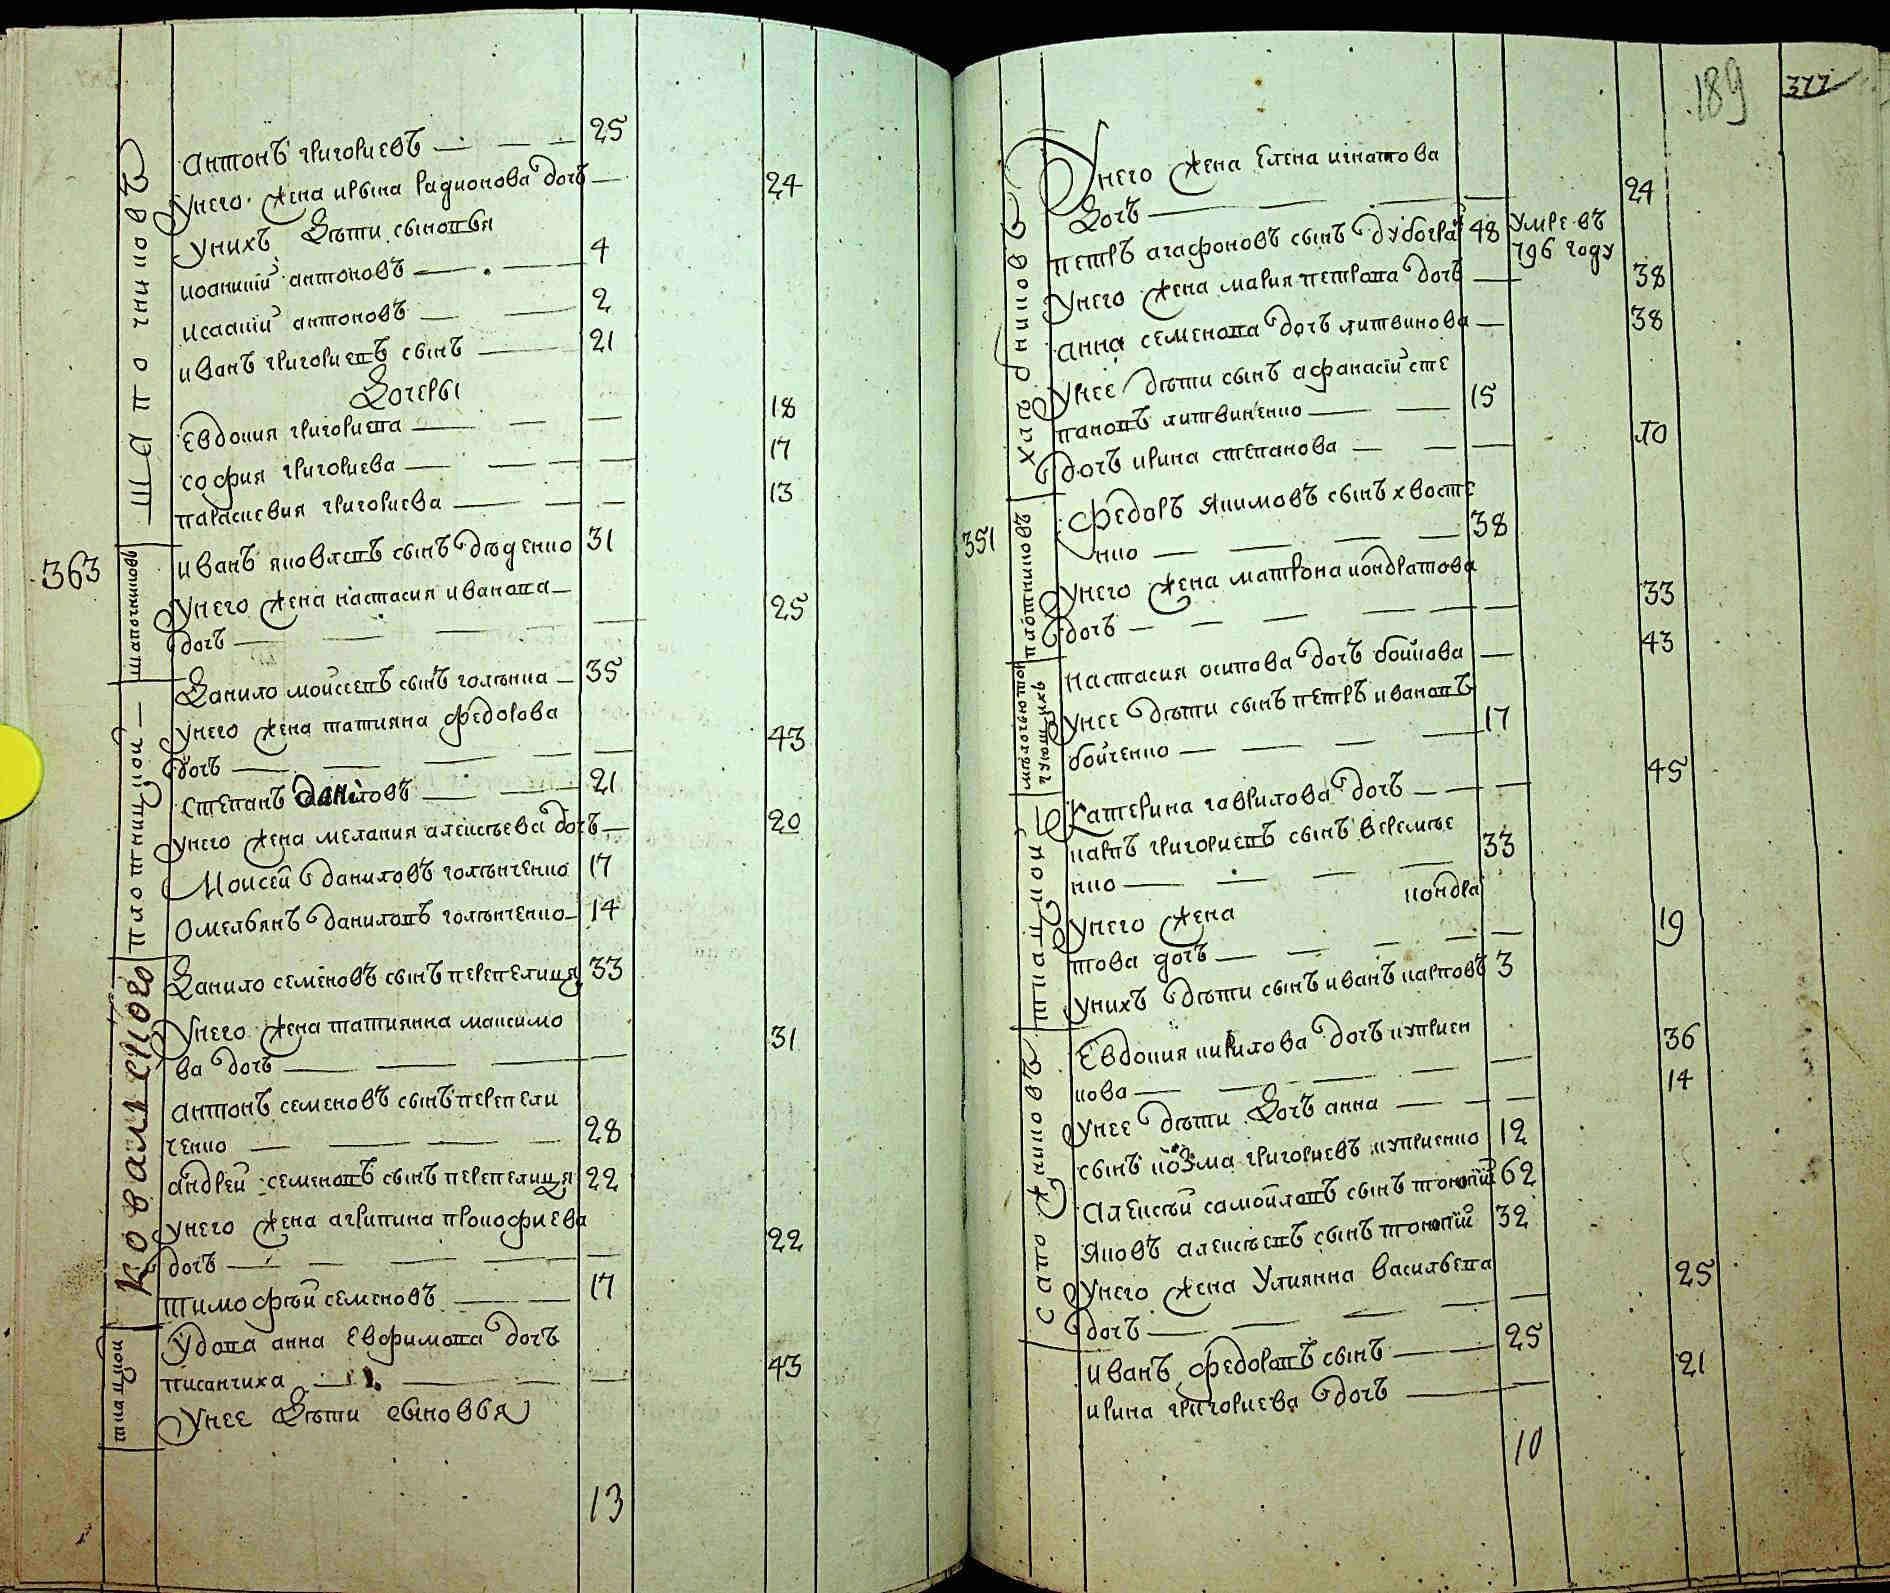 Шапочниковъ
Антонъ григориевъ — 25
У него жена ирына радионова дочъ — 24
У нихъ дѣти сыновья
иоаникий антоновъ — 4
исаакий антоновъ — 2
иванъ григориевъ сынъ — 21
Дочеры
Евдокия григориева — 18
софия григориева — 17
параскевия григориева — 13
363
шапочниковъ
иванъ яковлевъ сынъ дяденко 31
У него жена настасия иванова —
дочъ — 25
плотницкой —
Данило моисеевъ сынъ голѣнка — 35
У него жена татияна федорова
дочъ — 43
степанъ даниловъ — 21
У него жена мелания алексѣева дочъ — 20
Моисей даниловъ голѣнченко 17
Омельянъ даниловъ голѣнченко — 14
Ковалского
Данило семеновъ сынъ перепелиця 33
У него жена татиянна максимо
ва дочъ — 31
антонъ семеновъ сынъ перепели
ченко — 28
андрей семеновъ сынъ перепелиця 22
У него жена агрипина прокофиева
дочъ — 22
тимофѣй семеновъ — 17
ткацкой
Удова анна Евфимова дочъ
писанчиха — 43
У нее Дѣти сыновья
13
189
377
хлѣбниковъ
У него жена Елена игнатова
Дочъ — 24
петръ агафоновъ сынъ дубограй 48 Умре въ
796 году
У него жена мария петрова дочъ — 38
анна семенова дочъ литвинова — 38
У нее дѣти сынъ афанасий сте
пановъ литвиненко — 15
дочъ ирина степанова — 10
351
плотниковъ
Федоръ Якимовъ сынъ хвосте
нко — 38
У него жена матрона кондратова
дочъ — 33
мѣлочью тор
гующихъ
настасия осипова дочъ бойкова — 43
У нее дѣти сынъ петръ ивановъ
бойченко — 17
ткацкой
Катерина гаврилова дочъ — 45
карпъ григориевъ сынъ веремѣе
нко — 33
У него жена кондра
това дочъ — 19
У нихъ дѣти сынъ иванъ карповъ 3
сапожниковъ
Евдокия кирилова дочъ куприен
кова — 36
У нее дѣти Дочъ анна — 14
сынъ козма григориевъ куприенко 12
Алексѣй самойловъ сынъ тонкий 62
Яковъ алексѣевъ сынъ тонкий 32
У него жена Улиянна васильева
дочъ — 25
иванъ федоровъ сынъ — 25
ирина григориева дочъ — 21
10